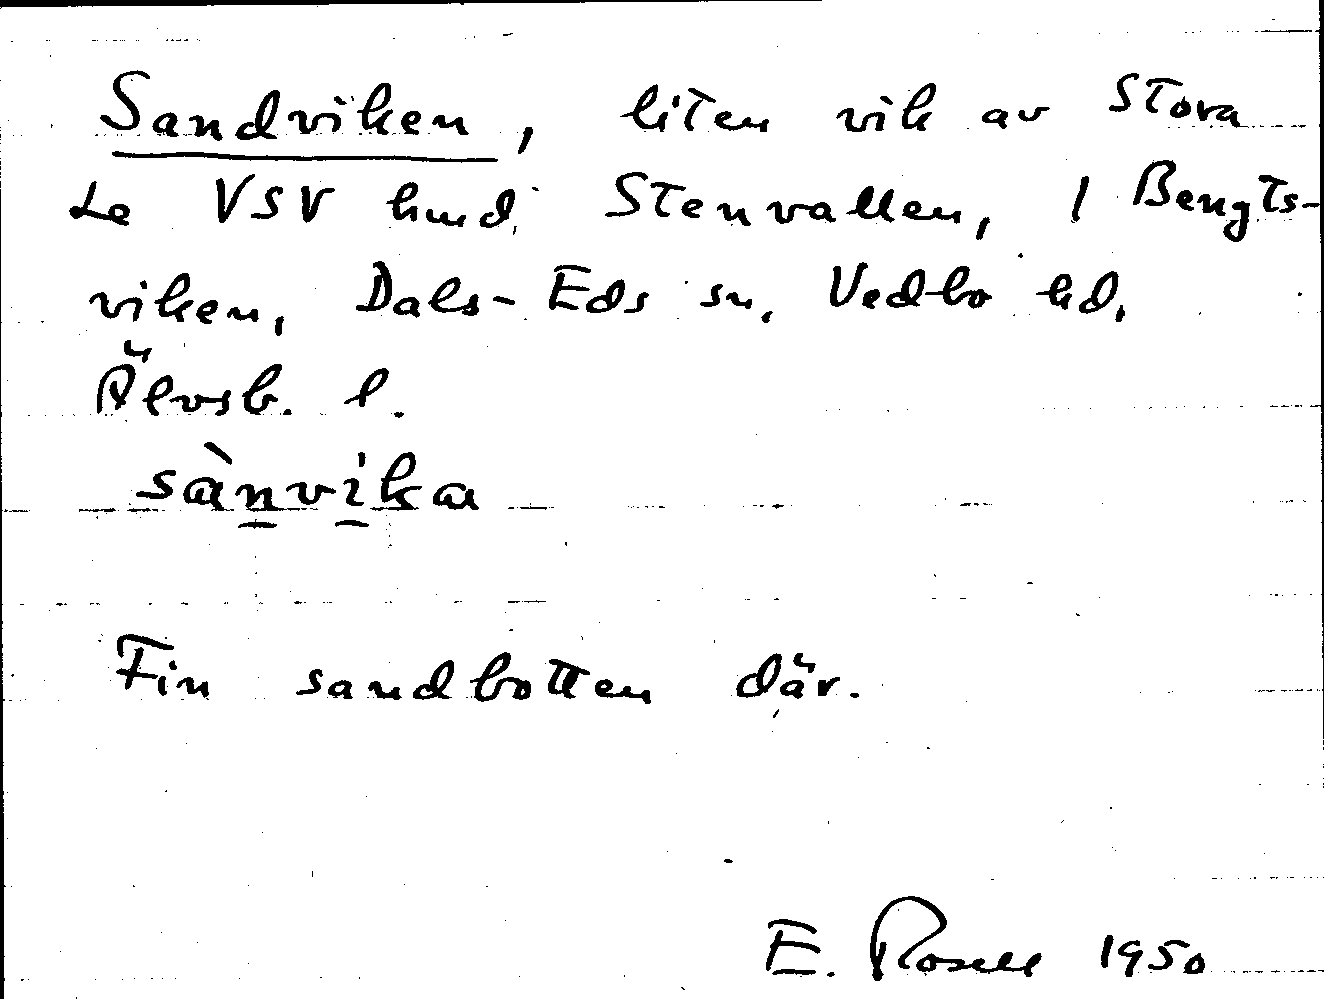 Sandviken, liten vik av Stora
Le VSV hmd. Stenvallen, 1 Bengts-
viken, Dals-Eds sn, Vedbo hd,
Älvsb. l.
sànvika
Fin sandbotten där.
E. Rosell 1950